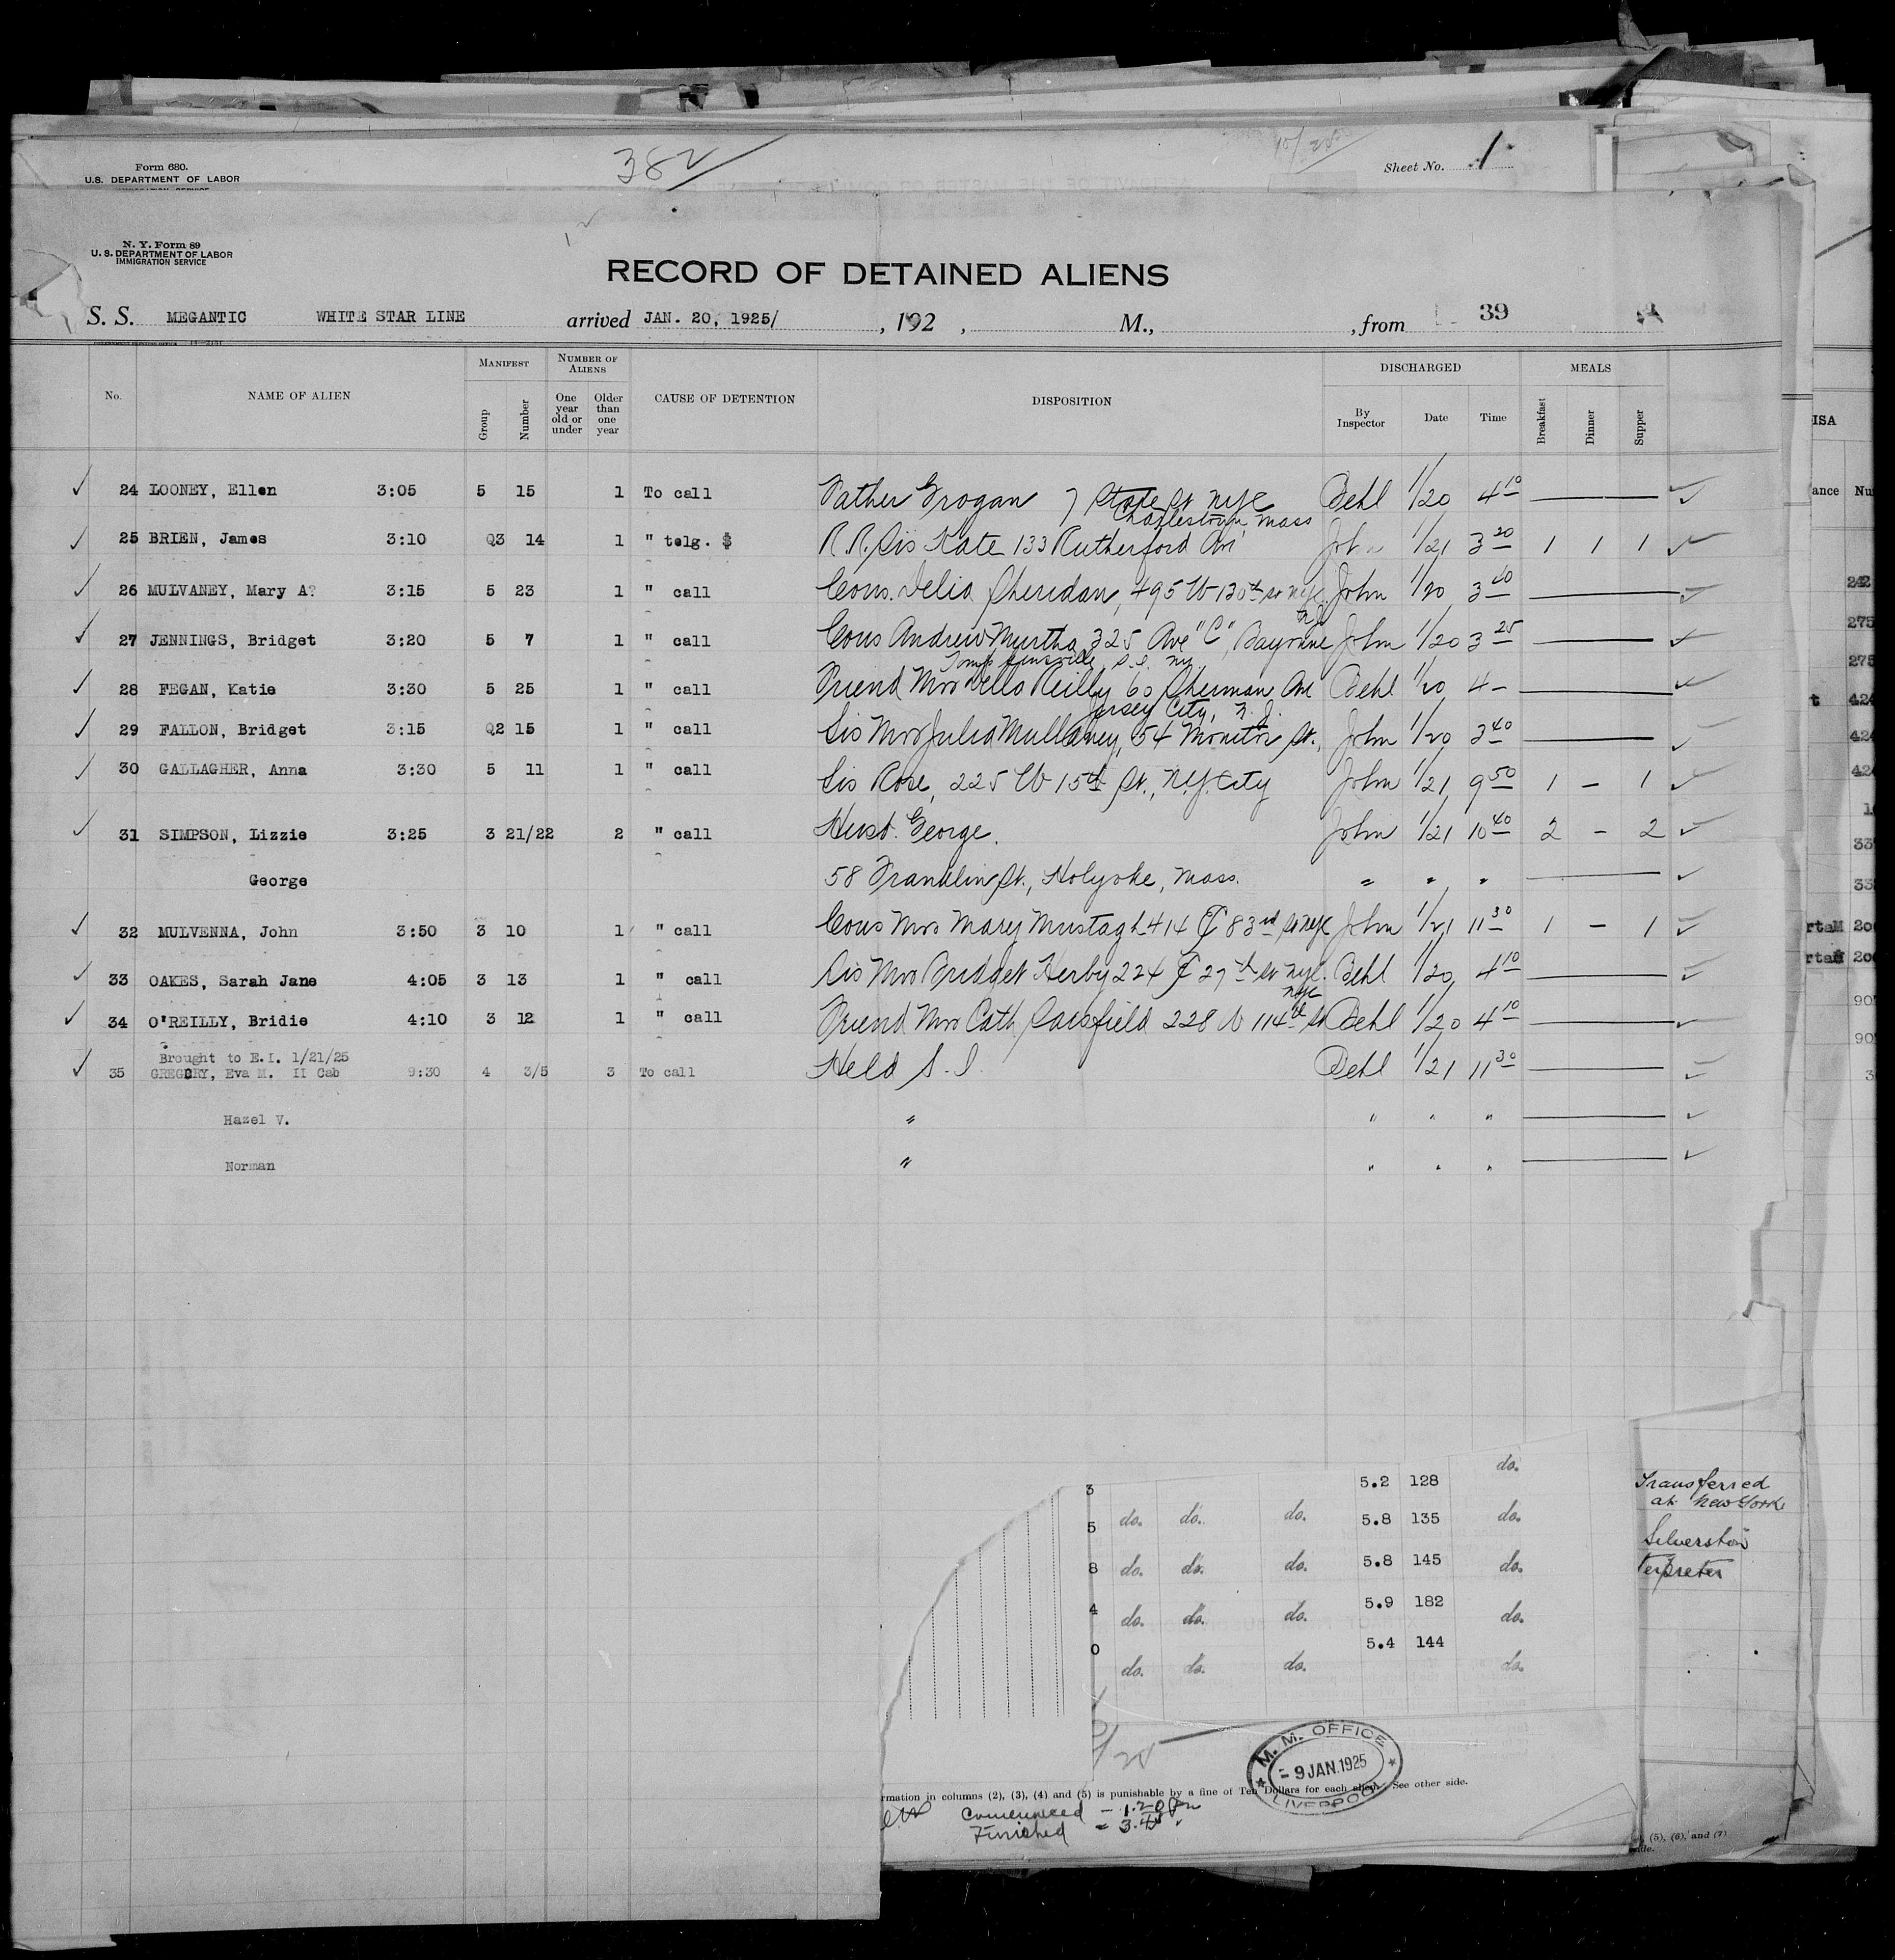 382
Form 680.
U.S. DEPARTMENT OF LABOR
Sheet No. 1
N. Y. Form 89
U. S. DEPARTMENT OF LABOR
IMMIGRATION SERVICE
RECORD OF DETAINED ALIENS
S. S. MEGANTIC WHITE STAR LINE arrived JAN. 20, 1925/ , 192 , M., , from 39
No. NAME OF ALIEN MANIFEST Group Number NUMBER OF ALIENS One year old or under Older than one year CAUSE OF DETENTION DISPOSITION DISCHARGED By Inspector Date Time MEALS Breakfast Dinner Supper
24 LOONEY, Ellen 3:05 5 15 1 To call Father Grogan 7 State St NYC Behl 1/20 4 10
Charlestown, Mass
25 BRIEN, James 3:10 Q3 14 1 " telg. $ R.R. Sis Kate 133 Rutherford Av John 1/21 3 20 1 1 1
26 MULVANEY, Mary A? 3:15 5 23 1 " call Cous. Delia Sheridan, 495 W 130th St NYC John 1/20 3 40
N.J.
27 JENNINGS, Bridget 3:20 5 7 1 " call Cous Andrew Murtha 325 Ave "C", Bayonne John 1/20 3 25
Tompkinsville, S.I. NY
28 FEGAN, Katie 3:30 5 25 1 " call Friend Mrs Della Reilly 60 Sherman Ave Behl 1/20 4 -
Jersey City, N.J.
29 FALLON, Bridget 3:15 Q2 15 1 " call Sis Mrs Julia Mullaney, 54 Monitor St., John 1/20 3 40
30 GALLAGHER, Anna 3:30 5 11 1 " call Sis Rose, 225 W 15th St., N.Y. City John 1/21 9 50 1 - 1
31 SIMPSON, Lizzie 3:25 3 21/22 2 " call Husb. George. John 1/21 10 40 2 - 2
George 58 Franklin St., Holyoke, Mass. " " "
32 MULVENNA, John 3:50 3 10 1 " call Cous Mrs Mary Mustagh 414 E 83rd St NYC John 1/21 11 30 1 - 1
33 OAKES, Sarah Jane 4:05 3 13 1 " call Sis Mrs Bridget Herby 224 E 27th St NYC. Behl 1/20 4 10
NYC
34 O'REILLY, Bridie 4:10 3 12 1 " call Friend Mrs Cath Sarsfield 228 W 114th St Behl 1/20 4 10
Brought to E.I. 1/21/25
35 GREGORY, Eva M. II Cab 9:30 4 3/5 3 To call Held S. I. Behl 1/21 11 30
Hazel V. " " " "
Norman " " " "
ISA
ance Nu
242
275
275
t 424
424
424
33
33
rtaM 200
rtaM 200
90
90
3
3 5.2 128 do.
5 do. do. do. 5.8 135 do.
8 do. do. do. 5.8 145 do.
4 do. do. do. 5.9 182 do.
0 do. do. do. 5.4 144 do.
Transferred
at New York
Silverston
terpreter
M. M. OFFICE
- 9 JAN. 1925
LIVERPOOL
rmation in columns (2), (3), (4) and (5) is punishable by a fine of Ten Dollars for each alien. See other side.
Commenced - 1.20 Pm
Finished = 3.45
(5), (6), and (7)